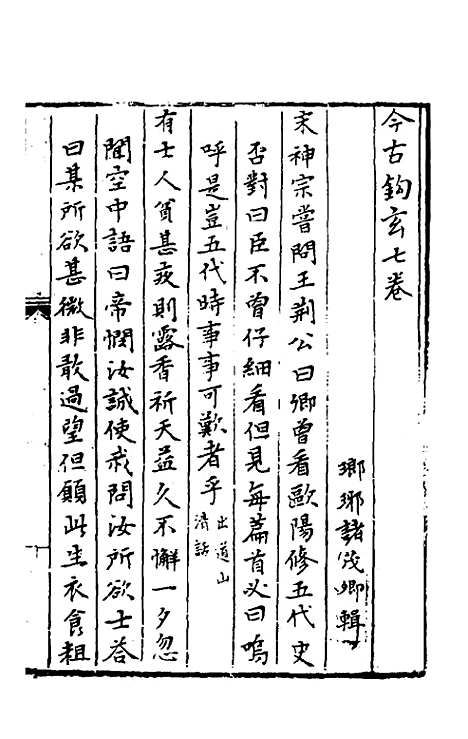 今古鈎玄七卷
瑯琊諸茂卿輯
宋神宗嘗問王荊公曰卿曾看歐陽修五代史
否對曰臣不曾仔細看但見每篇首必曰嗚
呼是豈五代時事事可歎者乎出道山清話
有士人貧甚夜則露香祈天益久不懈一夕忽
聞空中語曰帝憫汝誠使我問汝所欲士荅
曰某所欲甚微非敢過望但願此生衣食粗